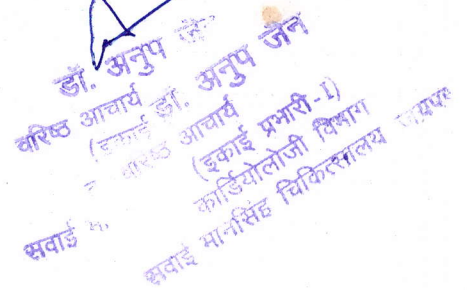 डॉ. अनुप
वरिष्ठ आचार्य
(इकाई
सवाई
डॉ. अनुप जैन
वरिष्ठ आचार्य
(इकाई प्रभारी-I)
कार्डियोलोजी विभाग
सवाई मानसिंह चिकित्सालय जयपुर